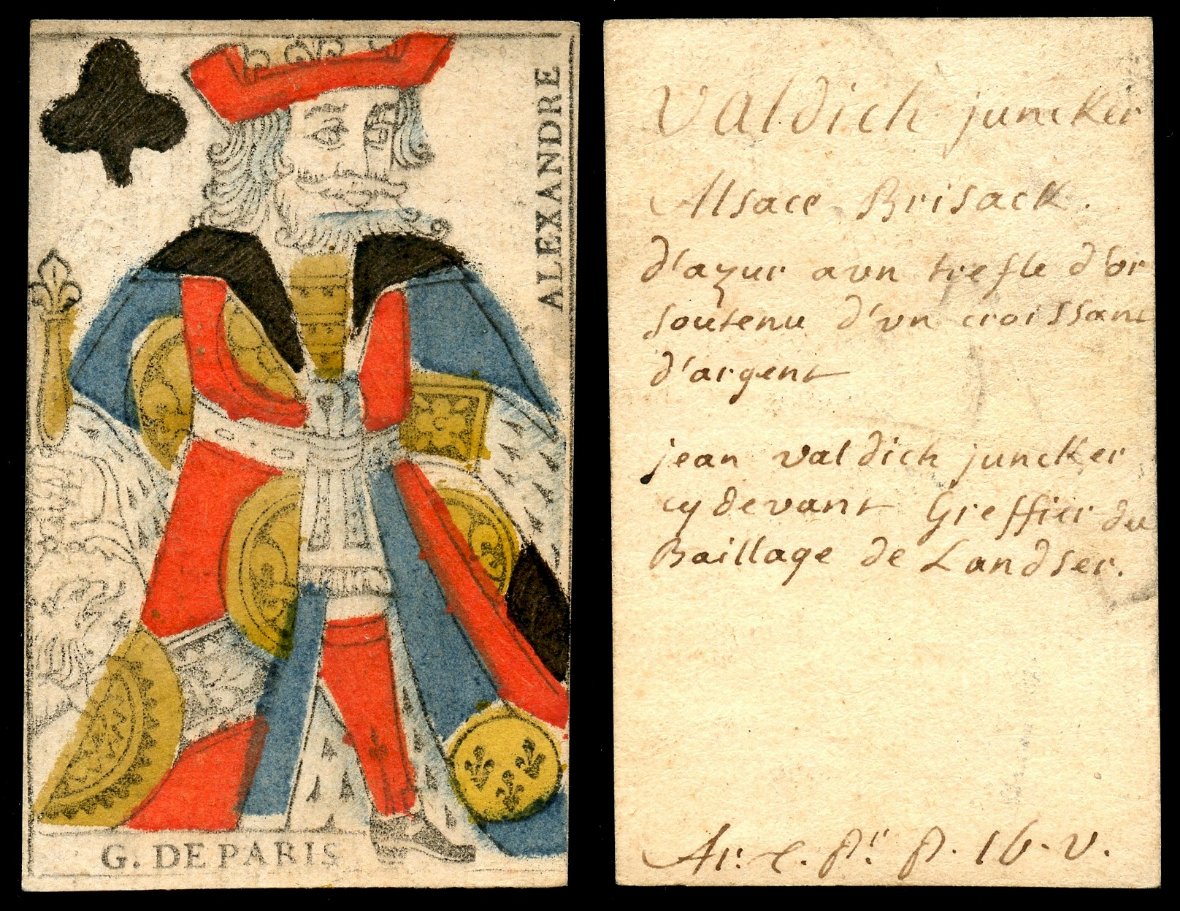 ALEXANDRE
G. DE PARIS
Valdich juncker
Alsace Brisack.
d'azur avn trefle d'or
soutenu d'vn croissant
d'argent
jean valdich juncker
cy devant Greffier du
Baillage de Landser.
Ar. 16. v.